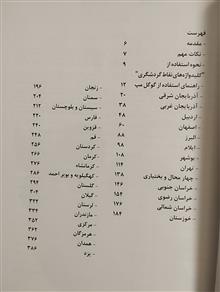 فهرست
- مقدمه ۶
- نکات مهم ۷
- نحوه استفاده از ۹
«کلیدواژه‌های نقاط گردشگری»
- راهنمای استفاده از گوگل مپ ۱۲
- آذربایجان شرقی ۲۰
- آذربایجان غربی ۳۸
- اردبیل ۴۸
- اصفهان ۶۰
- البرز ۸۸
- ایلام ۹۸
- بوشهر ۱۰۸
- تهران ۱۱۶
- چهار محال و بختیاری ۱۳۸
- خراسان جنوبی ۱۴۶
- خراسان رضوی ۱۵۴
- خراسان شمالی ۱۷۶
- خوزستان ۱۸۴
- زنجان ۱۹۶
- سمنان ۲۰۴
- سیستان و بلوچستان ۲۱۲
- فارس
- قزوین
- قم
- کردستان
- کرمان
- کرمانشاه
- کهگیلویه و بویر احمد
- گلستان
- گیلان
- لرستان
- مازندران
- مرکزی
- هرمزگان
- همدان
- یزد ۳۸۶